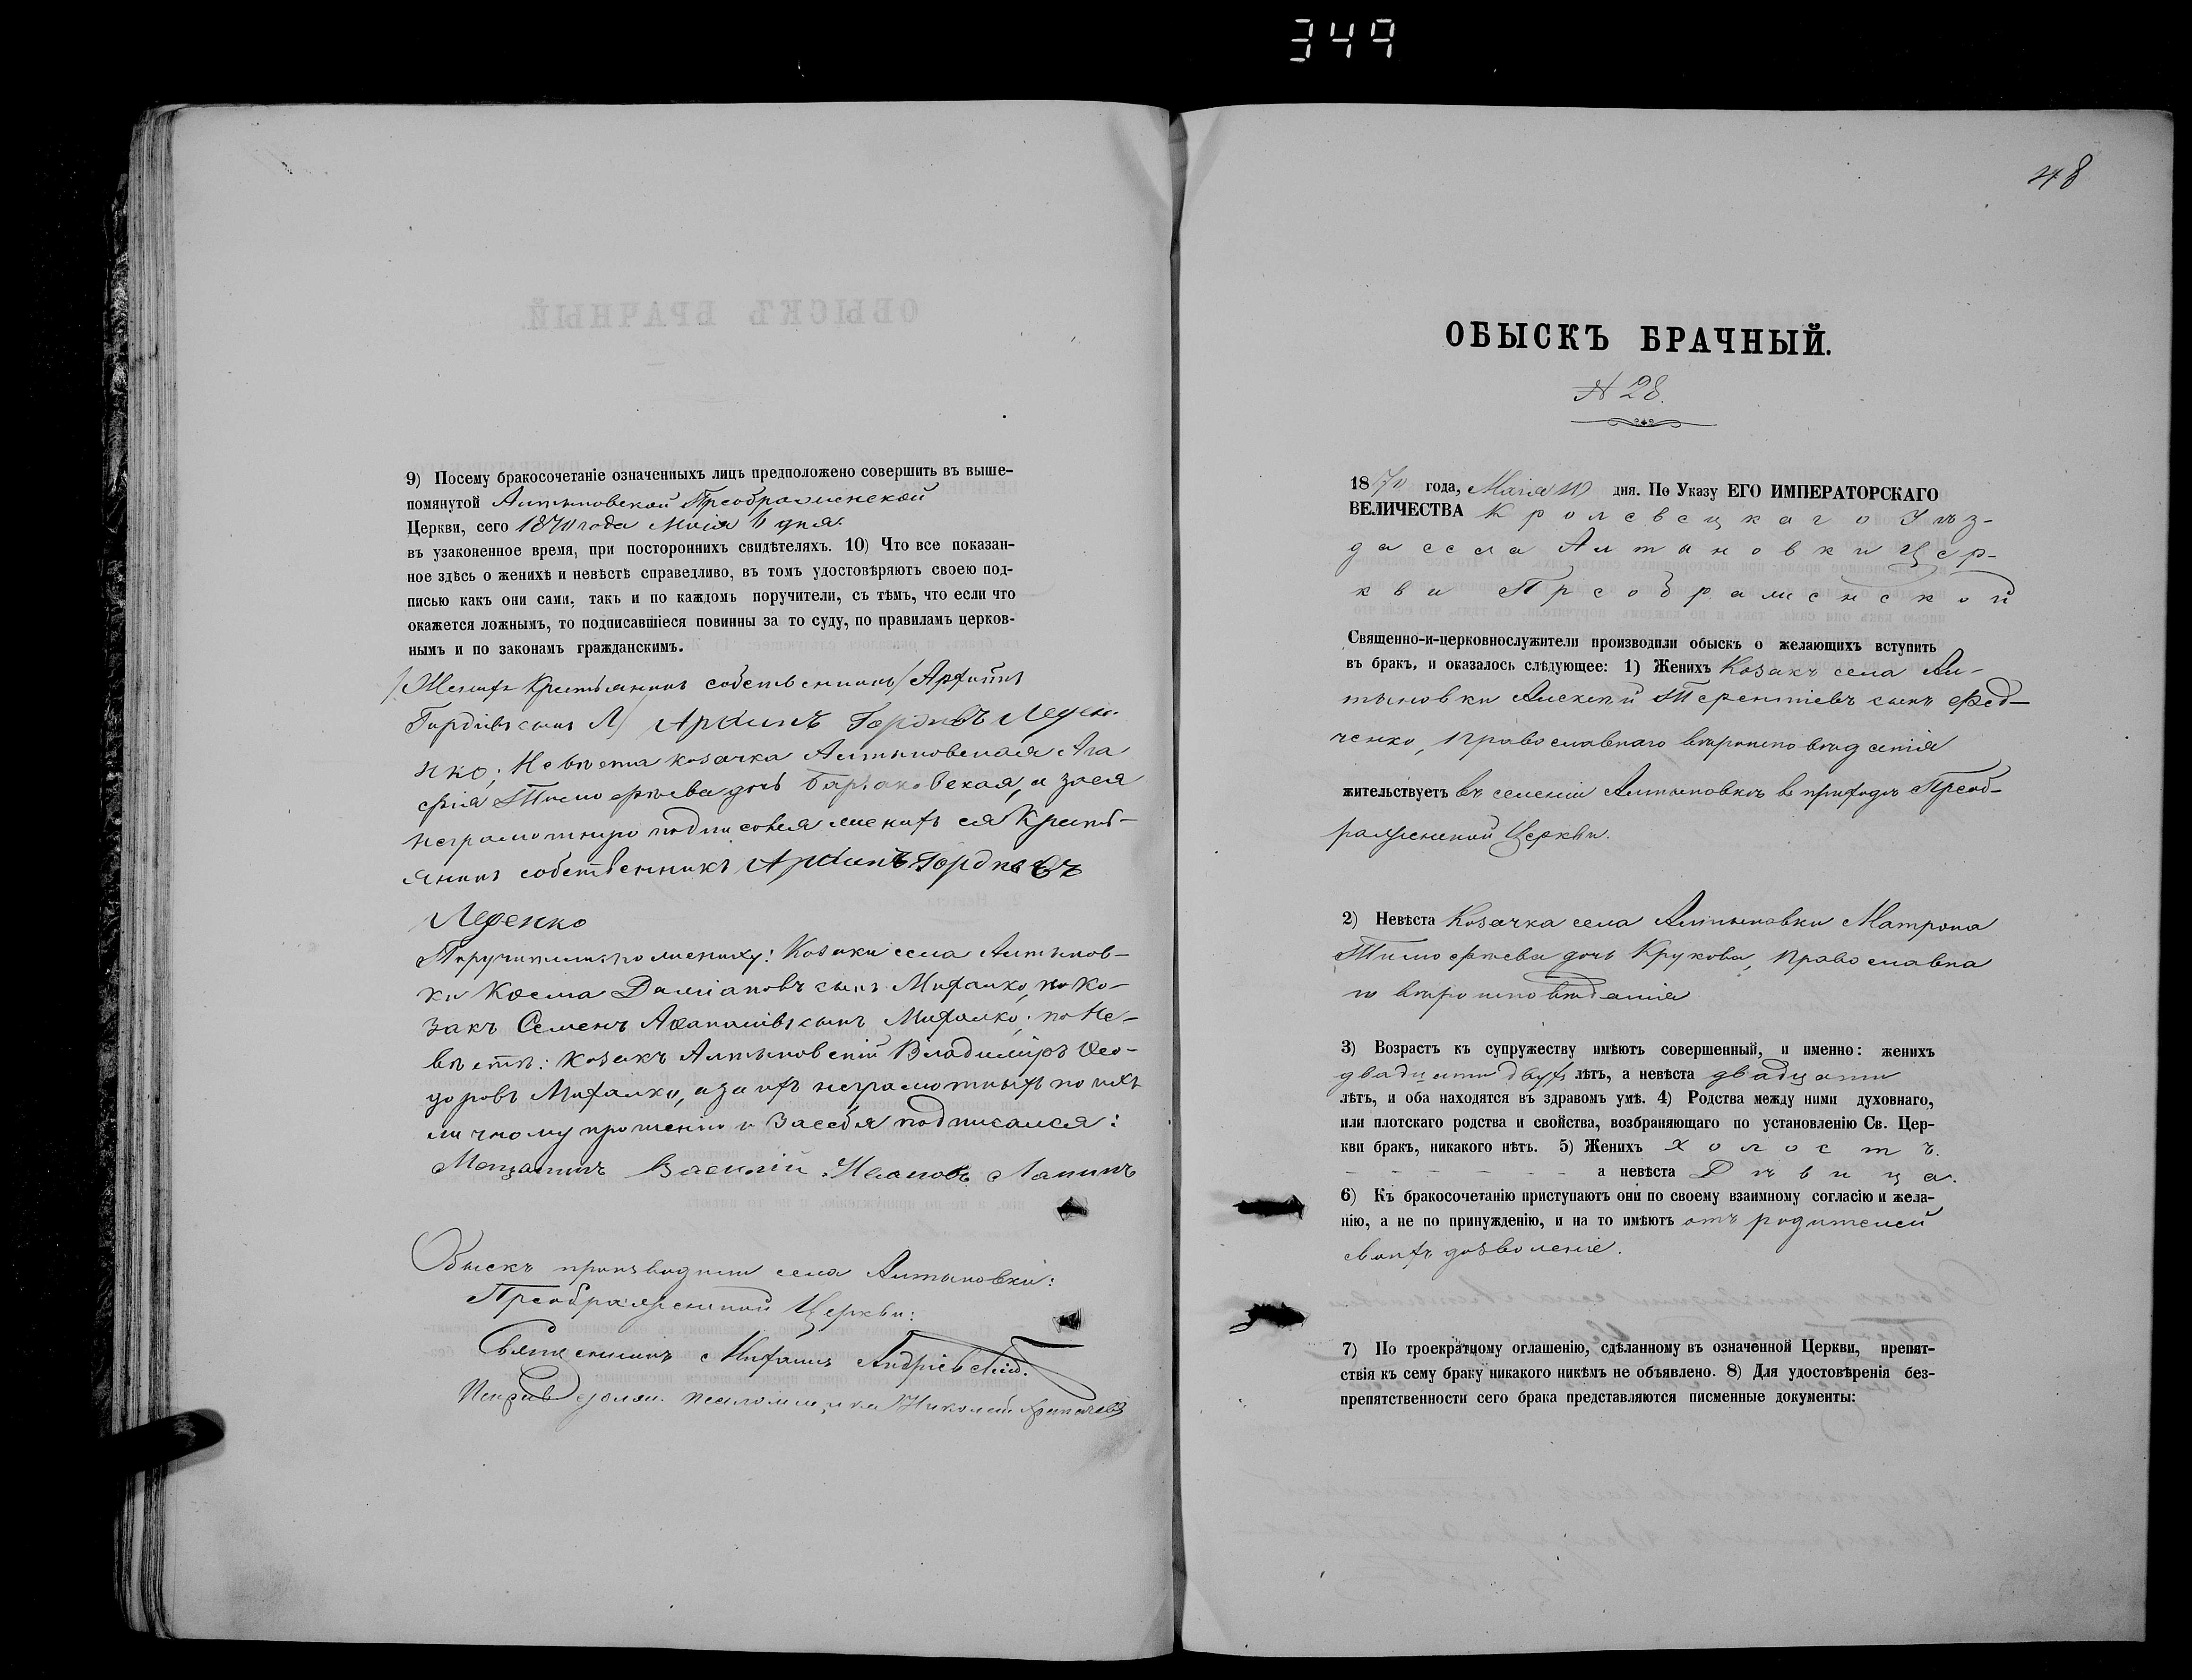 349
9) Посему бракосочетаніе означенныхъ лицъ предположено совершить въ выше-
помянутой Алтыновской Преображенской
Церкви, сего 1870 года Маія дня.
въ узаконенное время, при постороннихъ свидѣтеляхъ. 10) Что все показан-
ное здѣсь о женихѣ и невѣстѣ справедливо, въ томъ удостовѣряютъ своею под-
писью какъ они сами, такъ и по каждомъ поручители, съ тѣмъ, что если что
окажется ложнымъ, то подписавшіеся повинны за то суду, по правиламъ церков-
нымъ и по законамъ гражданскимъ.
Женихъ Крестьянинъ собственникъ
Гордіевъ сынъ Л/ Гордіевъ Леден-
нко; Невѣста козачка Алтыновская Ага
фія Тимофѣева дочь, а за ея
неграмотную подписовся женихъ ея Кресть-
янинъ собственникъ Гордѣевъ
Леденко
Поручители: по жениху: Козаки села Алтынов-
ки Косма Даміановъ сынъ Михалко, ко-
закъ Семенъ Афанасіевъ сынъ Михалко; по Не-
вѣстѣ: козакъ Алтыновскій Владимиръ Ѳео-
доровъ Михалко, а за ихъ неграмотныхъ по ихъ
личному прошенію и за себя подписался:
Мещанинъ Василій Ивановъ Лапинъ
Обыскъ производили села Алтыновки:
Преображенской Церкви:
Священникъ Михаилъ
должн. псаломщика Николай
48
ОБЫСКЪ БРАЧНЫЙ.
№ 28.
1870 года, Маія 10 дня. По Указу ЕГО ИМПЕРАТОРСКАГО
ВЕЛИЧЕСТВА Кролевецкаго Уѣз-
да села Алтыновки Цер-
кви Преображенской
Священно-и-церковнослужители производили обыскъ о желающихъ вступить
въ бракъ, и оказалось слѣдующее: 1) Женихъ Козакъ села Ал-
тыновки Алексѣй Терентіевъ сынъ Фед-
ченко, православнаго вѣроисповѣданія
жительствуетъ въ селеніи Алтыновкѣ в приходѣ Преоб-
раженской Церкви.
2) Невѣста Козачка села Алтыновки Матрона
Тимофѣева дочь Крукова, Православна
го вѣроисповѣданія
3) Возрастъ къ супружеству имѣютъ совершенный, и именно: женихъ
двадцати двухъ лѣтъ, а невѣста двадцати
лѣтъ, и оба находятся въ здравомъ умѣ. 4) Родства между ними духовнаго,
или плотскаго родства и свойства, возбраняющаго по установленію Св. Цер-
кви бракъ, никакого нѣтъ. 5) Женихъ холостъ.
а невѣста Дѣвица.
6) Къ бракосочетанію приступаютъ они по своему взаимному согласію и жела-
нію, а не по принужденію, и на то имѣютъ отъ родителей
своихъ дозволеніе.
7) По троекратному оглашенію, сдѣланному въ означенной Церкви, препят-
ствія къ сему браку никакого никѣмъ не объявлено. 8) Для удостовѣренія без-
препятственности сего брака представляются писменные документы: